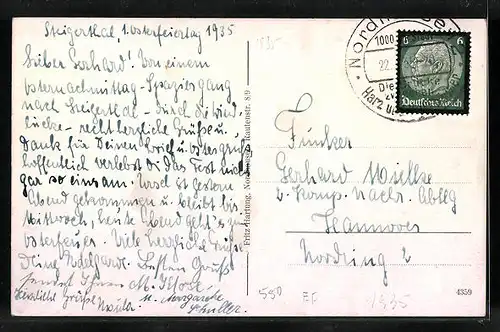 Steigerthal, 1. Osterfeiertag 1935
Lieber Gerhard! Von einem
Osternachmittag-Spaziergang
nach Steigerthal – durch die Wind-
lücke – recht herzliche Grüße u.
Dank für Deinen Brief u. Ostergruß
hoffentlich verlebst du das Fest nicht
gar so einsam. Ursel ist gestern
Abend gekommen u. bleibt bis
Mittwoch, heute Abend geht's zum
Osterfeuer. Viele herzliche Grüße
Deine Adelgard. Besten Gruß
sendet Ihnen M.
Herzliche Grüße u. Margarete
Schüller
1935
Nordhausen
1000
22.
Die
Harz
6 6
Deutsches Reich
Funker
Gerhard Mielke
2. Komp. Nachr. Abtlg
Hannover
Nordring 2
Fritz Hartung, Nordhausen, Rautenstr. 8/9
4359
550 EF 1935